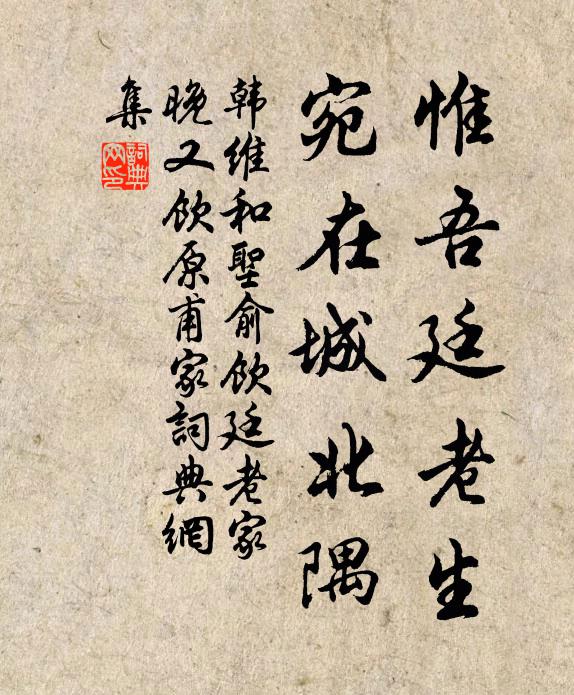 惟吾廷老生
宛在城北隅
韩维和聖俞饮廷老家
晚又饮原甫家詞典網
集
詞典
网印